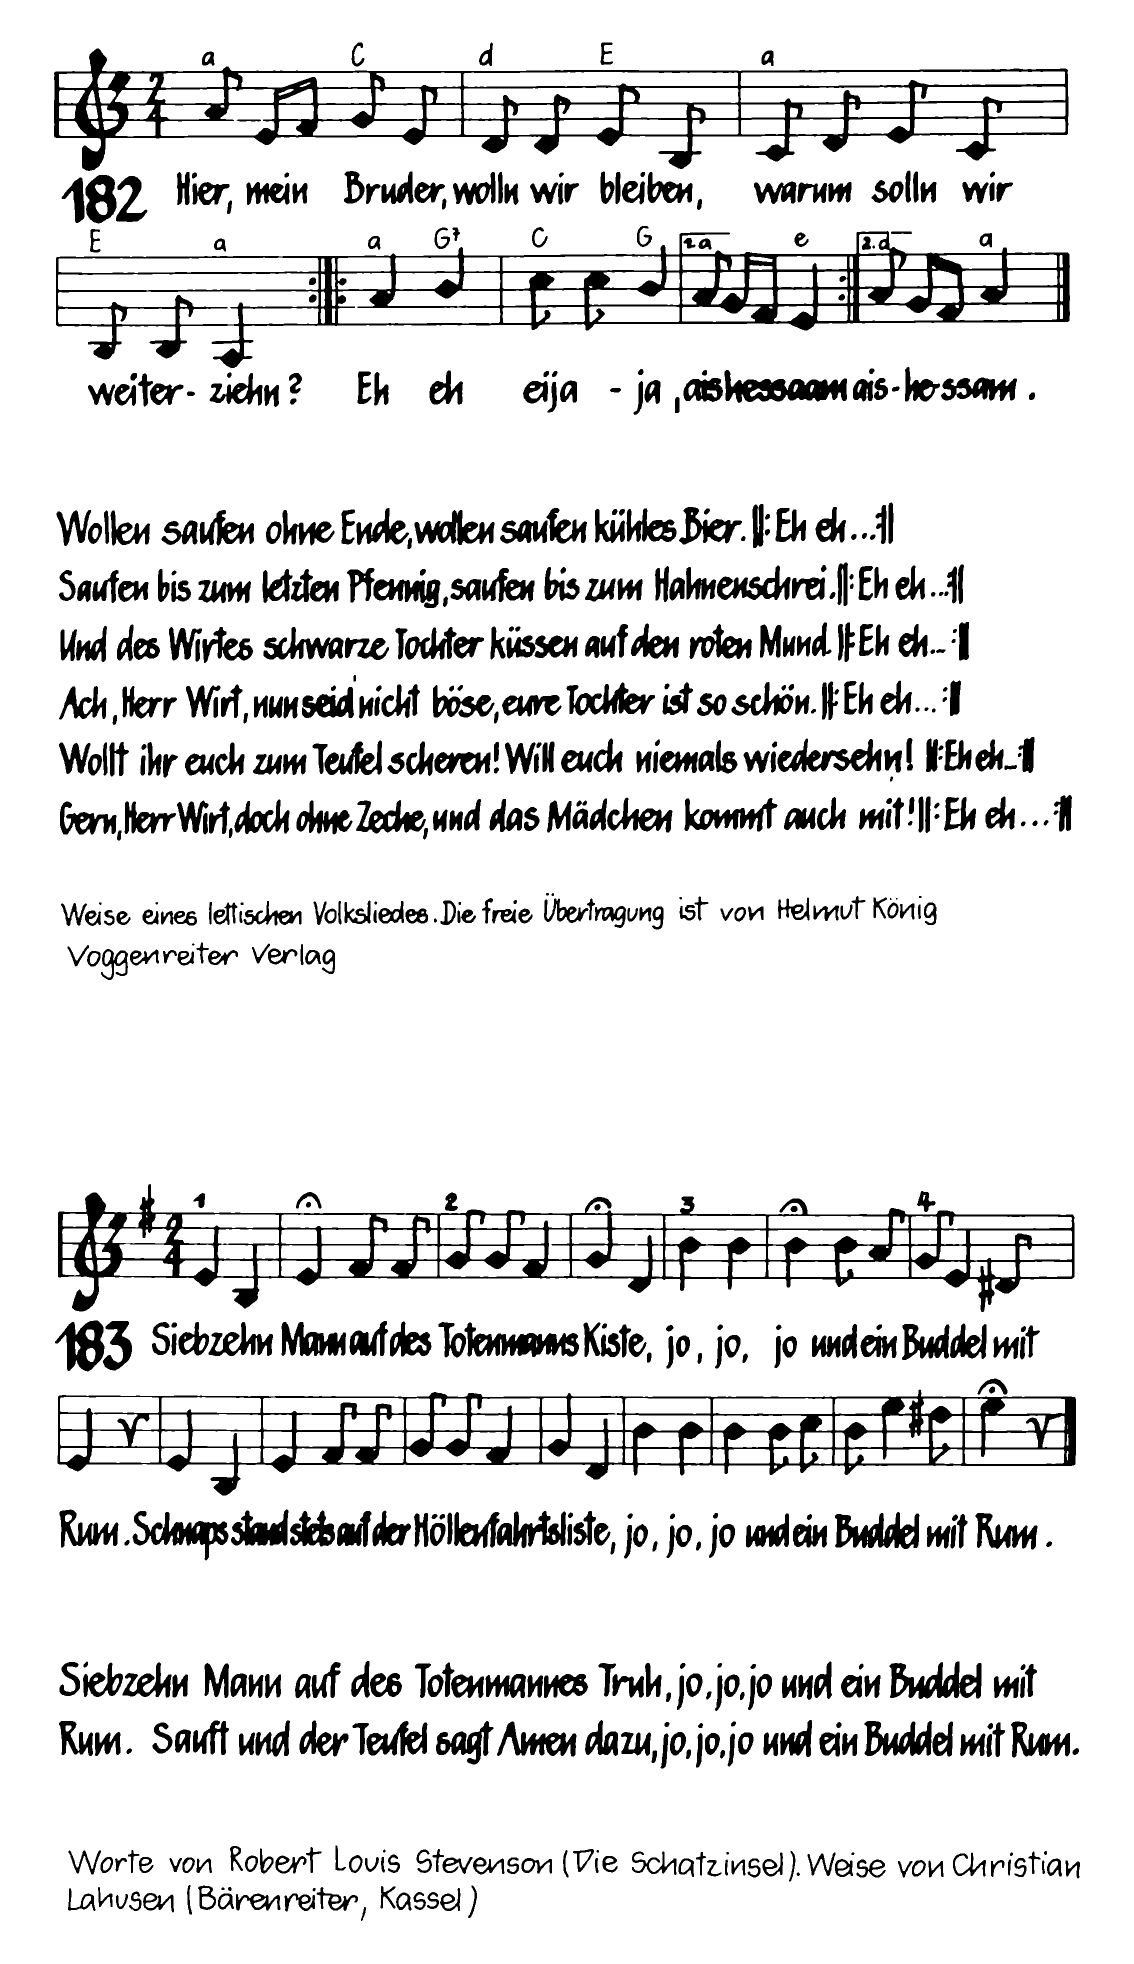 a C d E a
2 4
182 Hier, mein Bruder, wolln wir bleiben, warum solln wir
E a a G7 C G 1. a e 2. d a
weiter- ziehn? Eh eh eija - ja, aishessaam ais-hessam.
Wollen saufen ohne Ende, wollen saufen kühles Bier. ||: Eh eh...:||
Saufen bis zum letzten Pfennig, saufen bis zum Hahnenschrei. ||: Eh eh...:||
Und des Wirtes schwarze Tochter küssen auf den roten Mund. ||: Eh eh... :||
Ach, Herr Wirt, nun seid nicht böse, eure Tochter ist so schön. ||: Eh eh... :||
Wollt ihr euch zum Teufel scheren! Will euch niemals wiedersehn! ||: Eh eh... :||
Gern, Herr Wirt, doch ohne Zeche, und das Mädchen kommt auch mit! ||: Eh eh... :||
Weise eines lettischen Volksliedes. Die freie Übertragung ist von Helmut König
Voggenreiter Verlag
1 2 3 4
2 4
183 Siebzehn Mann auf des Totenmanns Kiste, jo, jo, jo und ein Buddel mit
Rum. Schnaps stand stets auf der Höllenfahrtsliste, jo, jo, jo und ein Buddel mit Rum.
Siebzehn Mann auf des Totenmannes Truh, jo, jo, jo und ein Buddel mit
Rum. Sauft und der Teufel sagt Amen dazu, jo, jo, jo und ein Buddel mit Rum.
Worte von Robert Louis Stevenson (Die Schatzinsel). Weise von Christian
Lahusen (Bärenreiter, Kassel)